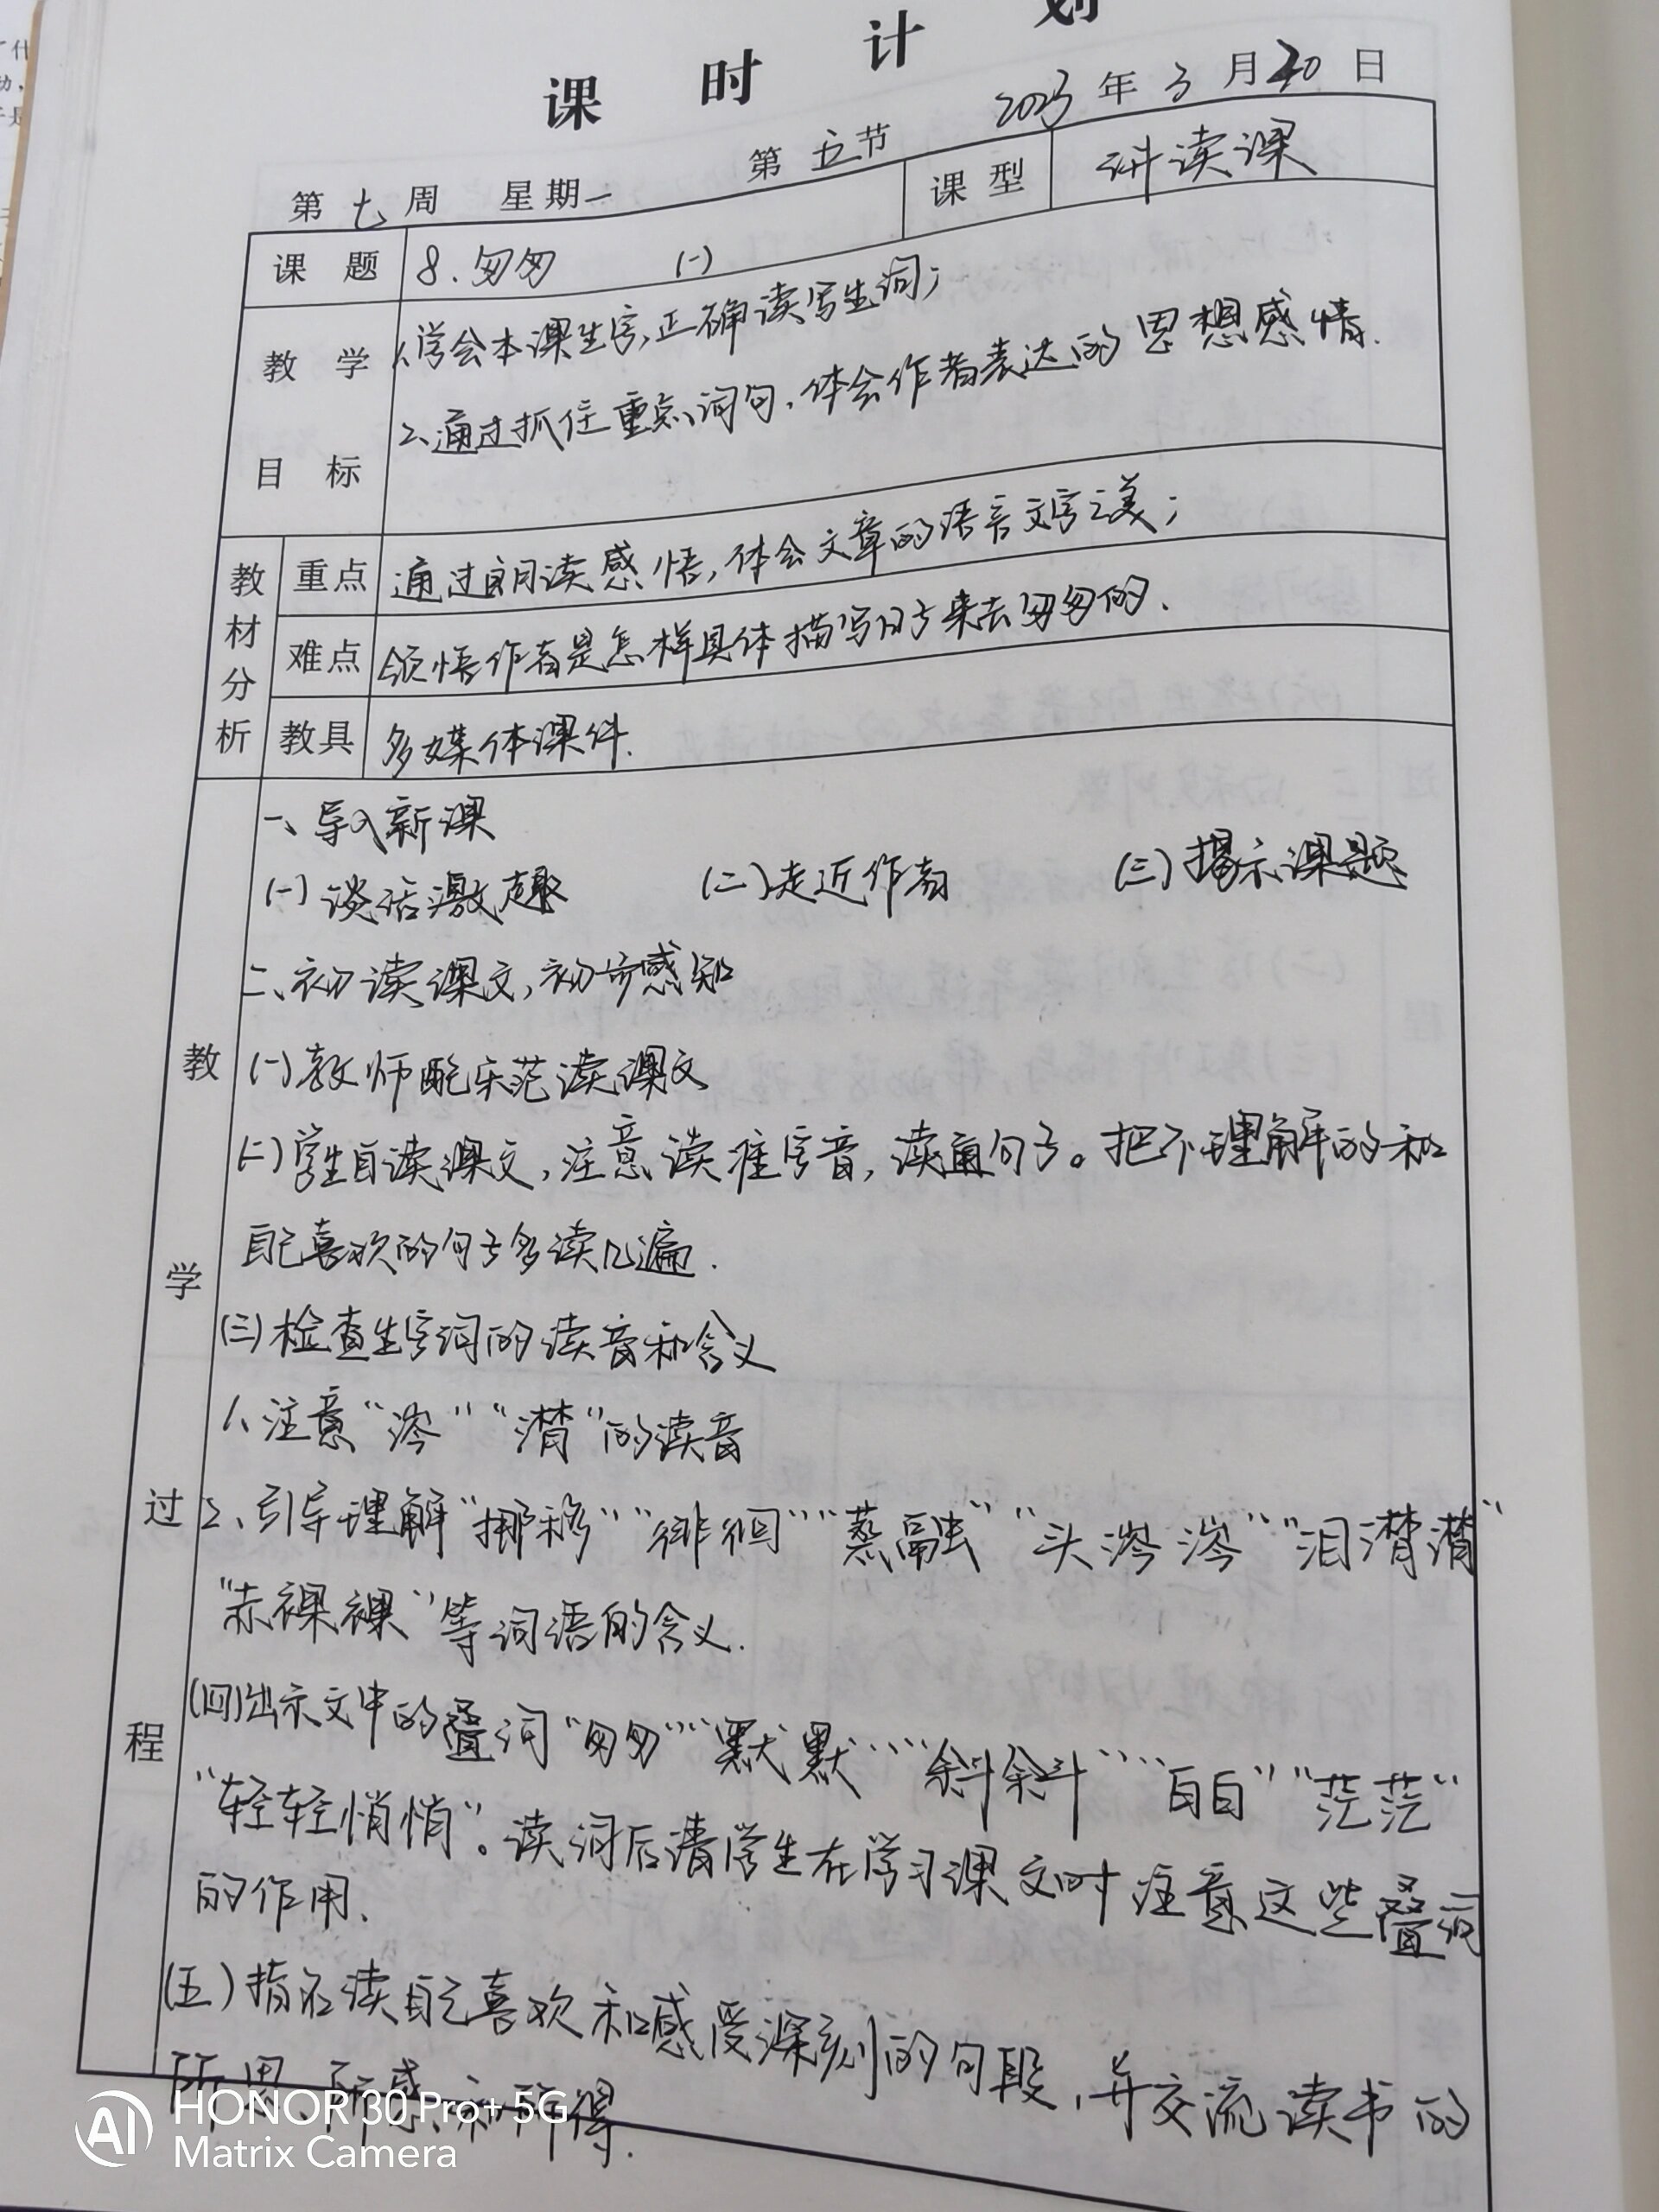 课时计划
2023年3月20日
第七周 星期一 第五节 课型 讲读课
课题 8.匆匆 (一)
教学目标
1、学会本课生字,正确读写生词;
2、通过抓住重点词句,体会作者表达的思想感情.
教材分析
重点 通过朗读感悟,体会文章的语言文字之美;
难点 领悟作者是怎样具体描写日子来去匆匆的.
教具 多媒体课件.
教学过程
一、导入新课
(一)谈话激趣 (二)走近作者 (三)揭示课题
二、初读课文,初步感知
(一)教师配乐范读课文
(二)学生自读课文,注意读准字音,读通句子。把不理解的和
自己喜欢的句子多读几遍.
(三)检查生字词的读音和含义
1、注意“涔”“潸”的读音
2、引导理解“挪移”“徘徊”“蒸融”“头涔涔”“泪潸潸”
“赤裸裸”等词语的含义.
(四)出示文中的叠词“匆匆”“默默”“斜斜”“白白”“茫茫”
“轻轻悄悄”。读词后请学生在学习课文时注意这些叠词
的作用.
(五)指名读自己喜欢和感受深刻的句段,并交流读书的
所思、所感、和所得.
HONOR 30 Pro+ 5G
Matrix Camera
AI